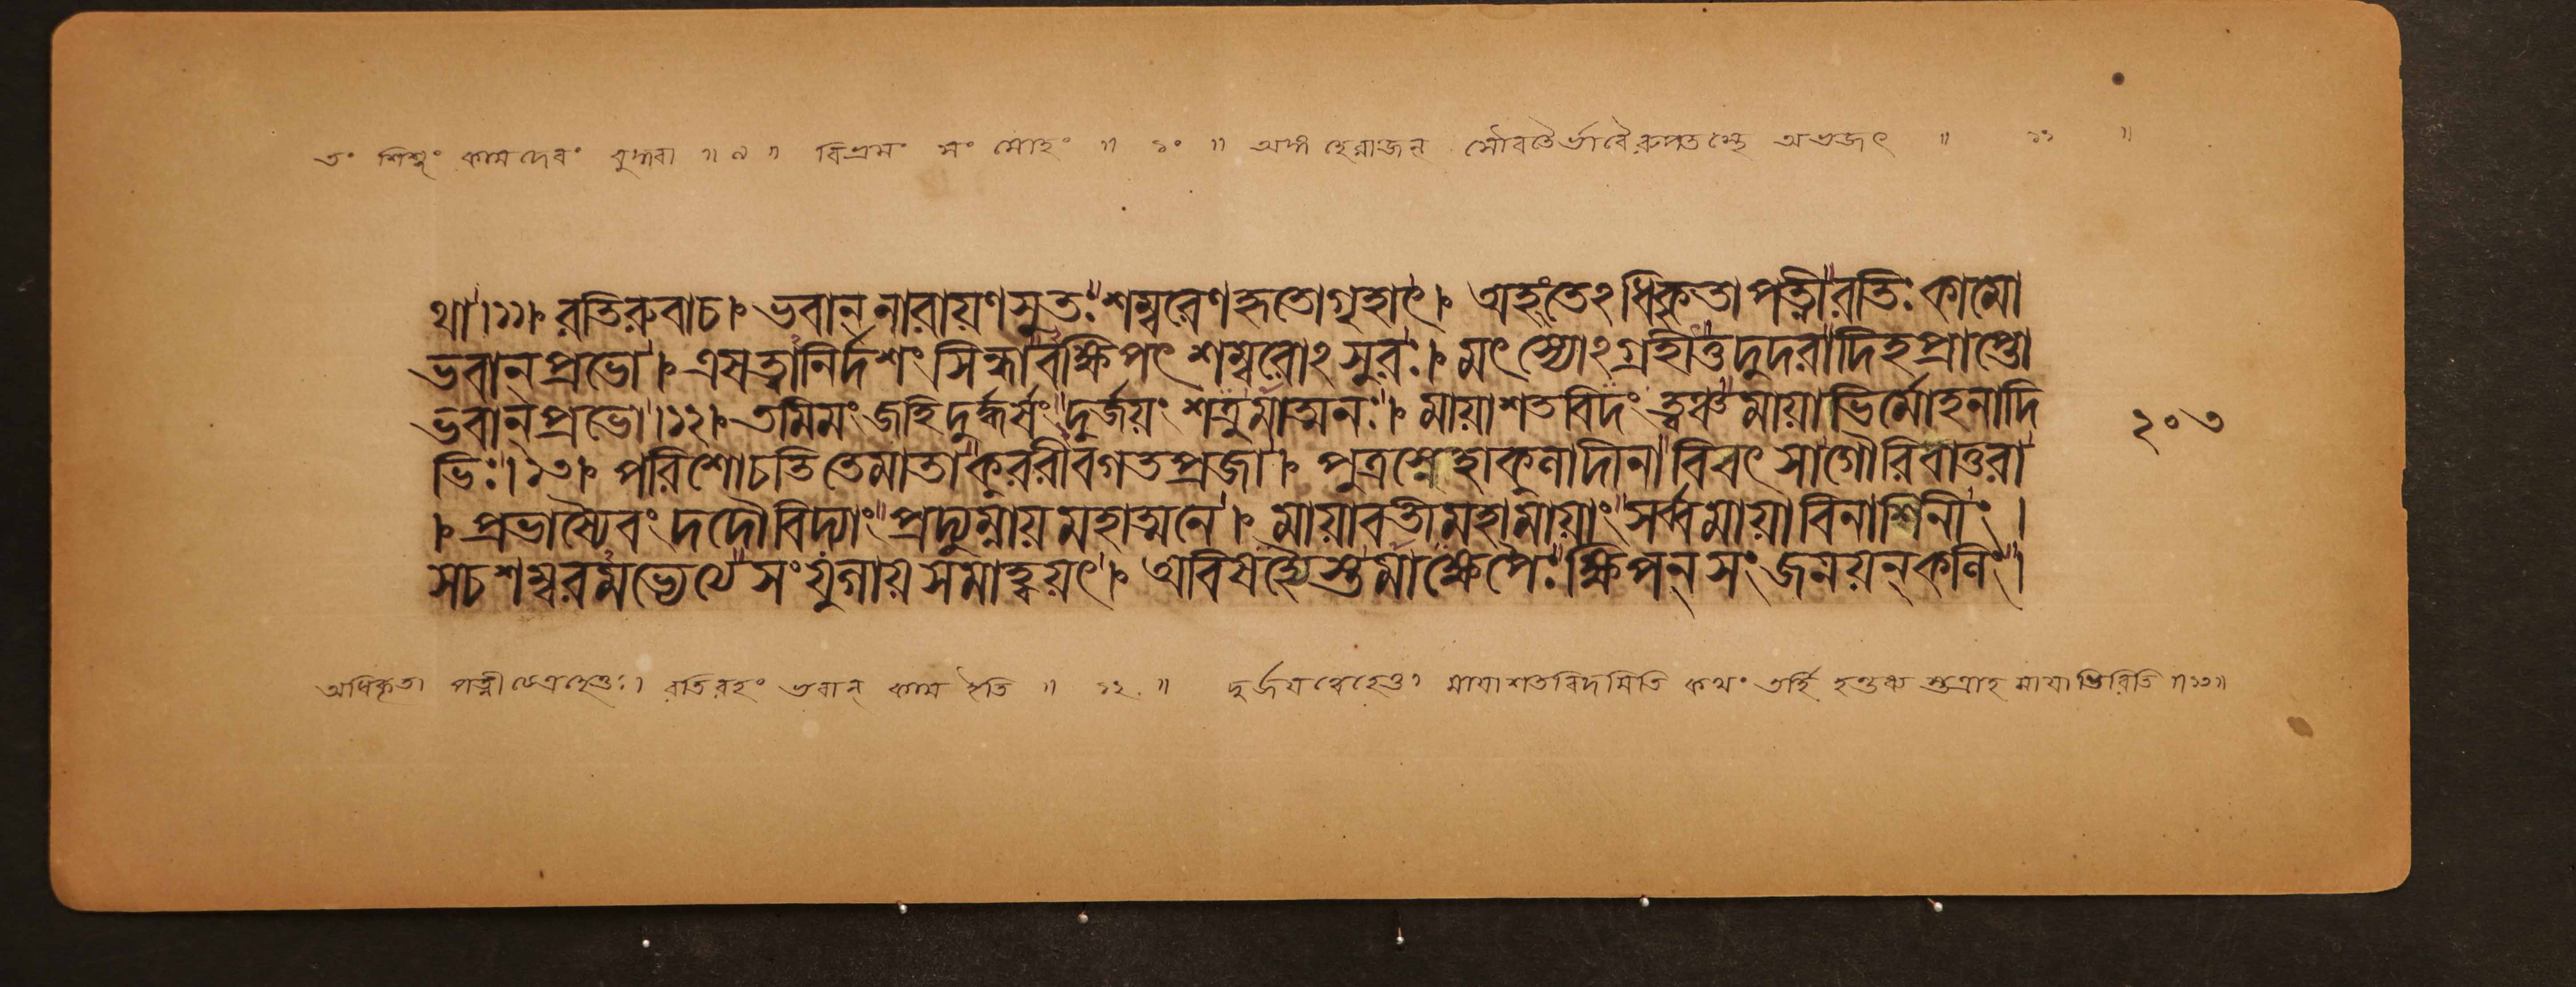 তং শিশুং কামদেবং বুদ্ধবা ॥ ৯ ॥ বিভ্রমং সং মোহং ॥ ১০ ॥ অথ হেরাজন্ সৌরতৈর্ভাবৈরুপতস্থে অভজৎ ॥ ১১ ॥
থা।১১। রতিরুবাচ। ভবান্ নারায়ণসুতঃ শম্বরেণহৃতোগৃহাৎ। অহংতেঽধিকৃতা পত্নীরতিঃ কামো
ভবান্ প্রভো। এষত্বানির্দশং সিন্ধাবক্ষিপৎ শম্বরোঽসুরঃ। মৎস্যোঽগ্রহীত্তদুদরাদিহপ্রাপ্তো
ভবান্ প্রভো।১২। তমিমং জহিদুর্দ্ধর্ষং দুর্জয়ং শত্রুমাত্মনঃ। মায়াশতবিদং ত্বঞ্চ মায়াভির্মোহনাদি
ভিঃ।১৩। পরিশোচতি তেমাতা কুররীবগতপ্রজা। পুত্রস্নেহাকুলাদীনা বিবৎ সাগৌরিবাতুরা
। প্রভাষ্যৈবং দদৌবিদ্যাং প্রদ্যুম্নায়মহাত্মনে। মায়াবতীমহামায়াং সর্ব্বমায়াবিনাশিনীং।
সচশম্বরমভ্যেত্য সংযুগায়সমাহ্বয়ৎ। অবিষহ্যৈস্তমাক্ষেপৈঃ ক্ষিপন্ সংজনয়ন্ কলিং।
২০৩
অধিকৃতা পত্নীত্যেত্রহেতুঃ। রতিরহং ভবান্ কাম ইতি ॥ ১২ ॥ দুর্জয়ত্বেহেতুঃ মায়াশতবিদমিতি কথং তর্হি হন্তব্য স্তত্রাহ মায়াভিরিতি ॥১৩॥